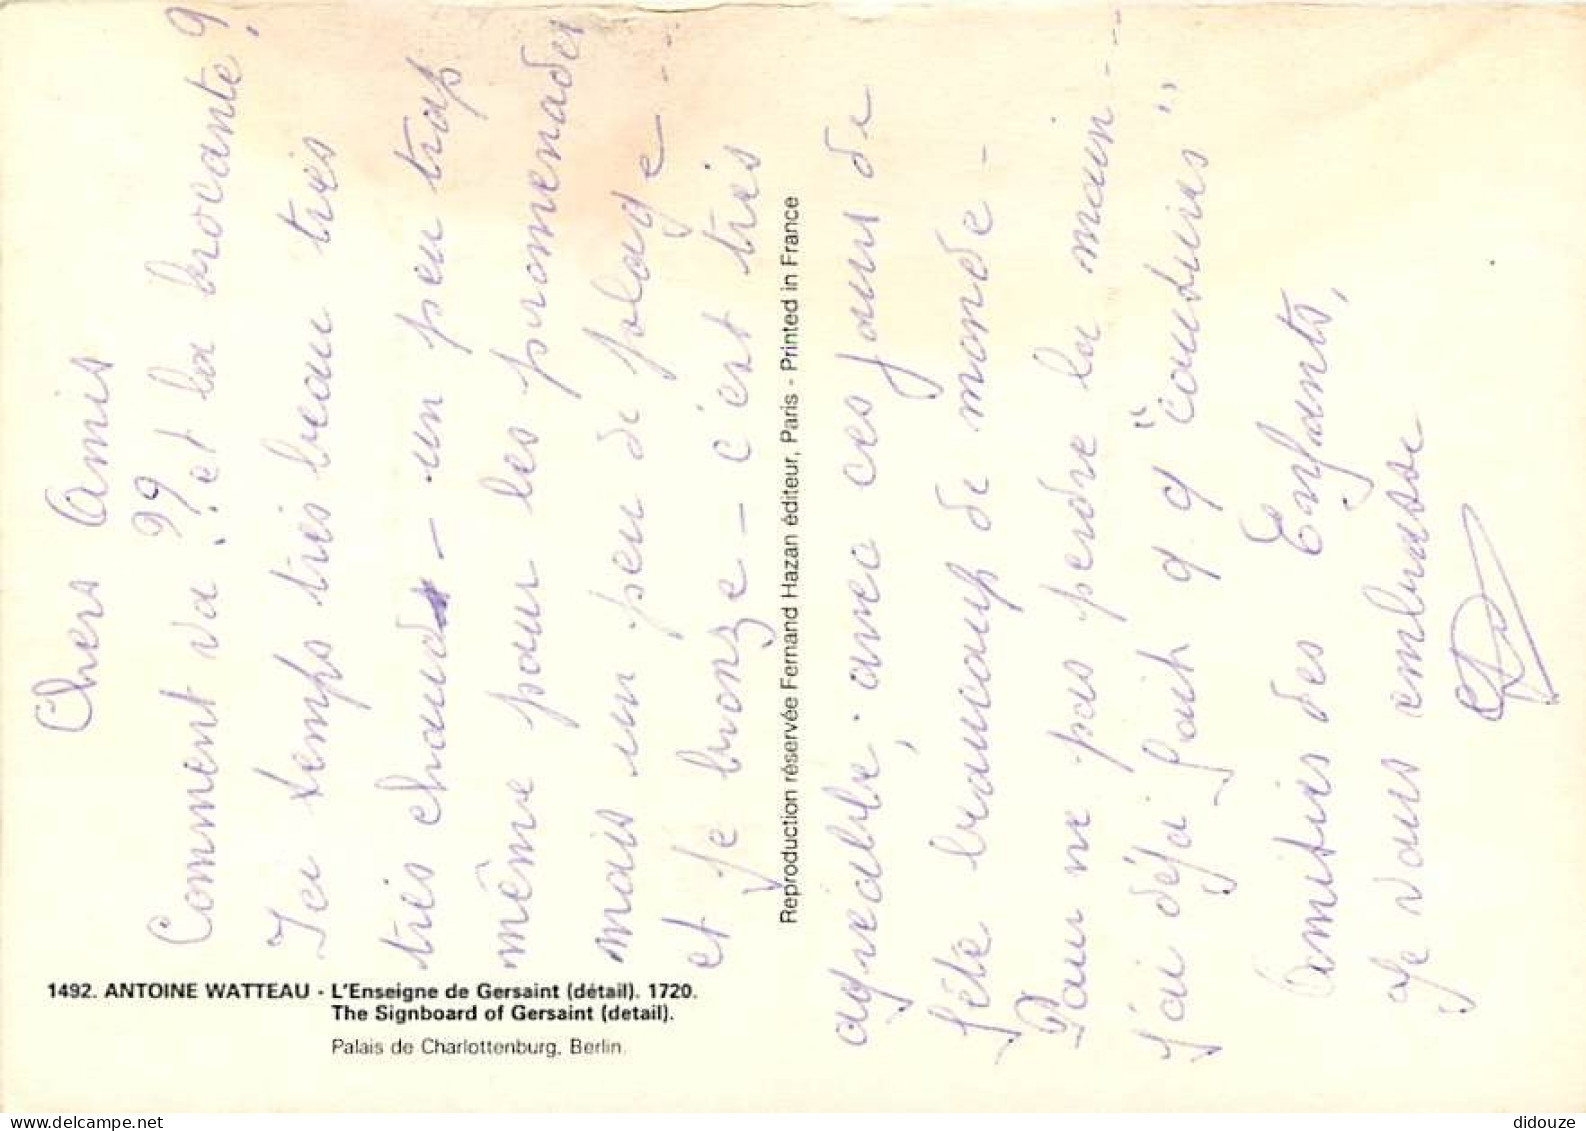 Chers Amis
Comment va ?? et la brocante ?
Ici temps très beau très
très chaud – un peu trop
même pour les promenades
mais un peu de polage ---
et je bronze – c'est très
agréable. avec ces jours de
fête, beaucoup de monde –
Pour ne pas perdre la main ---
j'ai déjà fait q q "coutures"
Amitiés des Enfants,
Je vous embrasse
Reproduction réservée Fernand Hazan éditeur, Paris - Printed in France
1492. ANTOINE WATTEAU - L'Enseigne de Gersaint (détail). 1720.
The Signboard of Gersaint (detail).
Palais de Charlottenburg, Berlin.
didouze